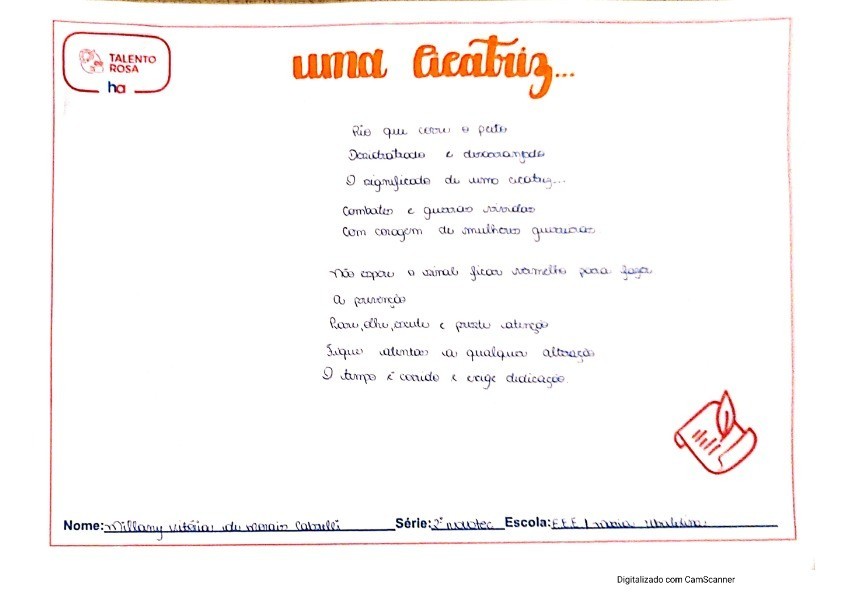 TALENTO
ROSA
ha
uma cicatriz...
Rio que corre o peito
Desidratado e
O significado de uma cicatriz...
Combates e guerras vividas
Com coragem de mulheres guerreiras
Não espere o sinal ficar vermelho para fazer
A prevenção
Pare, olhe, escute e preste atenção
Fique atentas a qualquer alteração
O tempo é corrido e exige dedicação.
Nome: Millany Vitória de Morais Série: 2° novotec Escola: E.E
Digitalizado com CamScanner